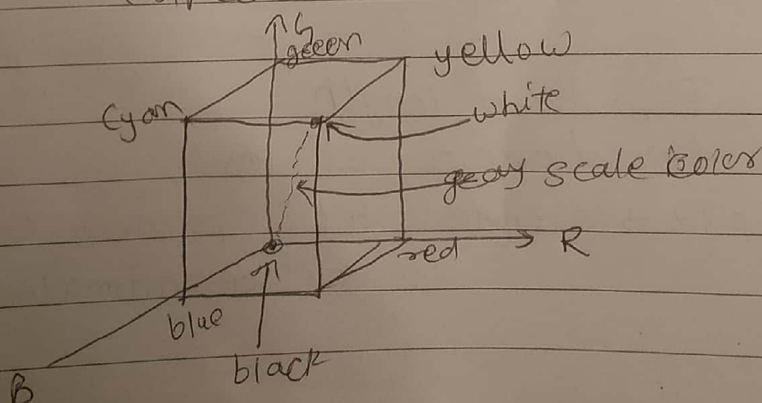 G
green
yellow
Cyan
white
gray scale color
red
R
blue
black
B